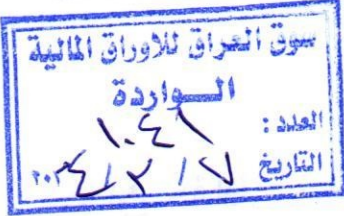 سوق العراق للاوراق المالية
الـــواردة
العدد :
التاريخ ٧ / ٣ / ٢٠٢٤